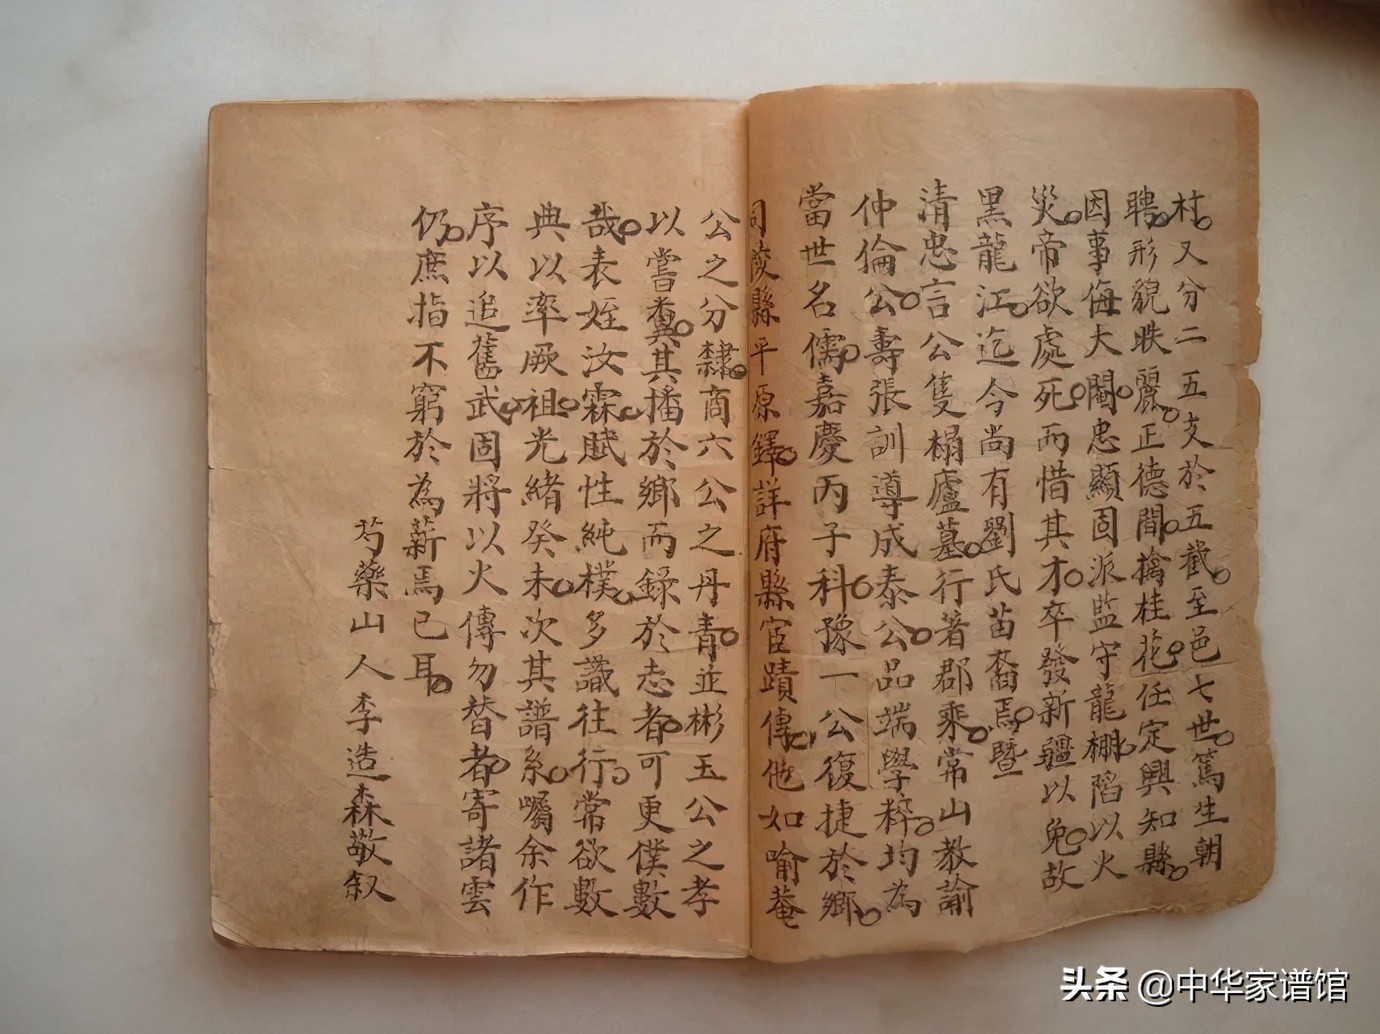 村又分二五支於五截至邑七世篤生朝
聘形貌昳麗正德間擒桂花任定興知縣
因事侮大閹忠顯固派監守龍棚陷以火
災帝欲處死而惜其才卒發新疆以免故
黑龍江迄今尚有劉氏苗裔焉暨
清忠言公隻榻廬墓行著郡乘常山教諭
仲倫公壽張訓導成泰公品端學粹均為
當世名儒嘉慶丙子科豫一公復捷於鄉
司陵縣平原鐸詳府縣宦蹟傳他如喻菴
公之分隸商六公之丹青並彬玉公之孝
以嘗糞其播於鄉而錄於志者可更僕數
哉表姪汝霖賦性純樸多識往行常欲數
典以率厥祖光緒癸未次其譜系囑余作
序以追舊武固將以火傳勿替者寄諸雲
仍庶指不窮於為薪焉已耳
芍藥山人李造森敬叙
头条 @中华家谱馆